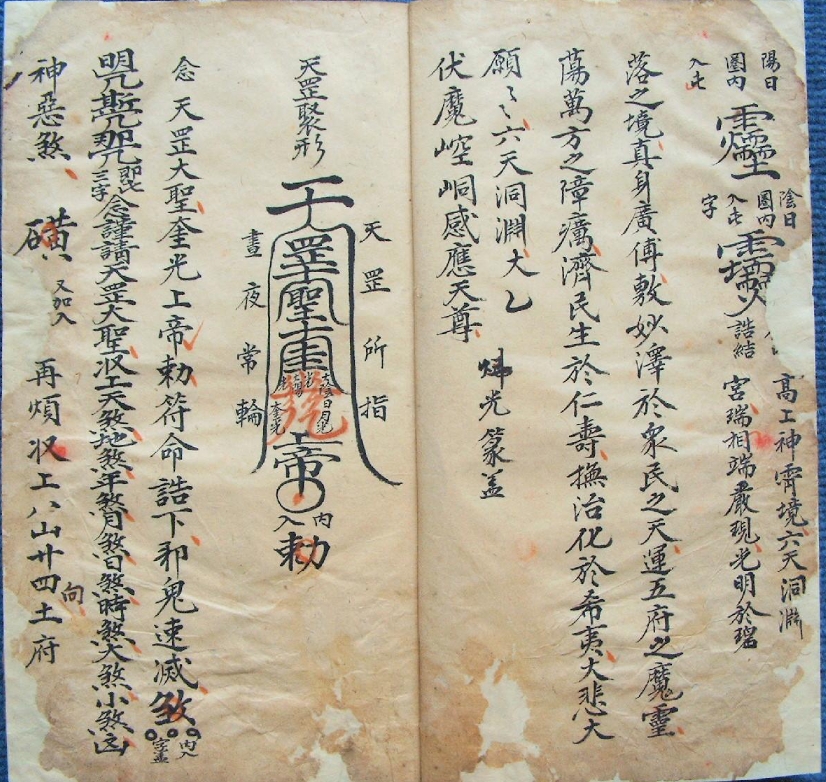 陽日
圈内
入此
陰日
圈内
入此
字
誥結
高工神霄境六天洞淵
宮瑞相端嚴現光明於碧
落之境真身廣傅敷妙澤於衆民之天運五府之魔靈
蕩萬方之障癘濟民生於仁壽撫治化於希夷大悲大
願〻六天洞淵大乙
伏魔崆峒感應天尊
煒光篆盖
天罡聚形
天罡所指
晝夜常輪
罡聖
奎光
帝
内入
勅
念天罡大聖奎光上帝勅符命誥下邪鬼速滅煞
内入
字盖
即此三字念謹請天罡大聖收工天煞地煞年煞月煞日煞時煞大煞小煞凶
神惡煞
磺
又加入
再煩收工八山廿四土府
向